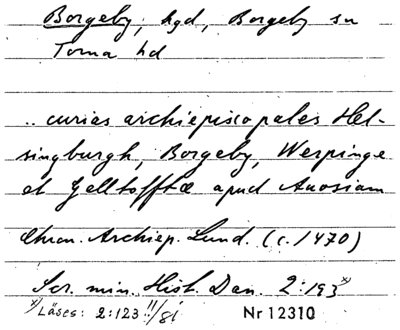 Borgeby, hgd, Borgeby sn
Torna hd
.. curias archiepiscopales Hel-
singburgh, Borgeby, Werpinge
et Gelltofftæ apud Auosiam
Chron. Archiep. Lund. (c. 1470)
Scr. min. Hist. Dan. 2:193 x)
x) Läses: 2:123 !!/ Nr 12310